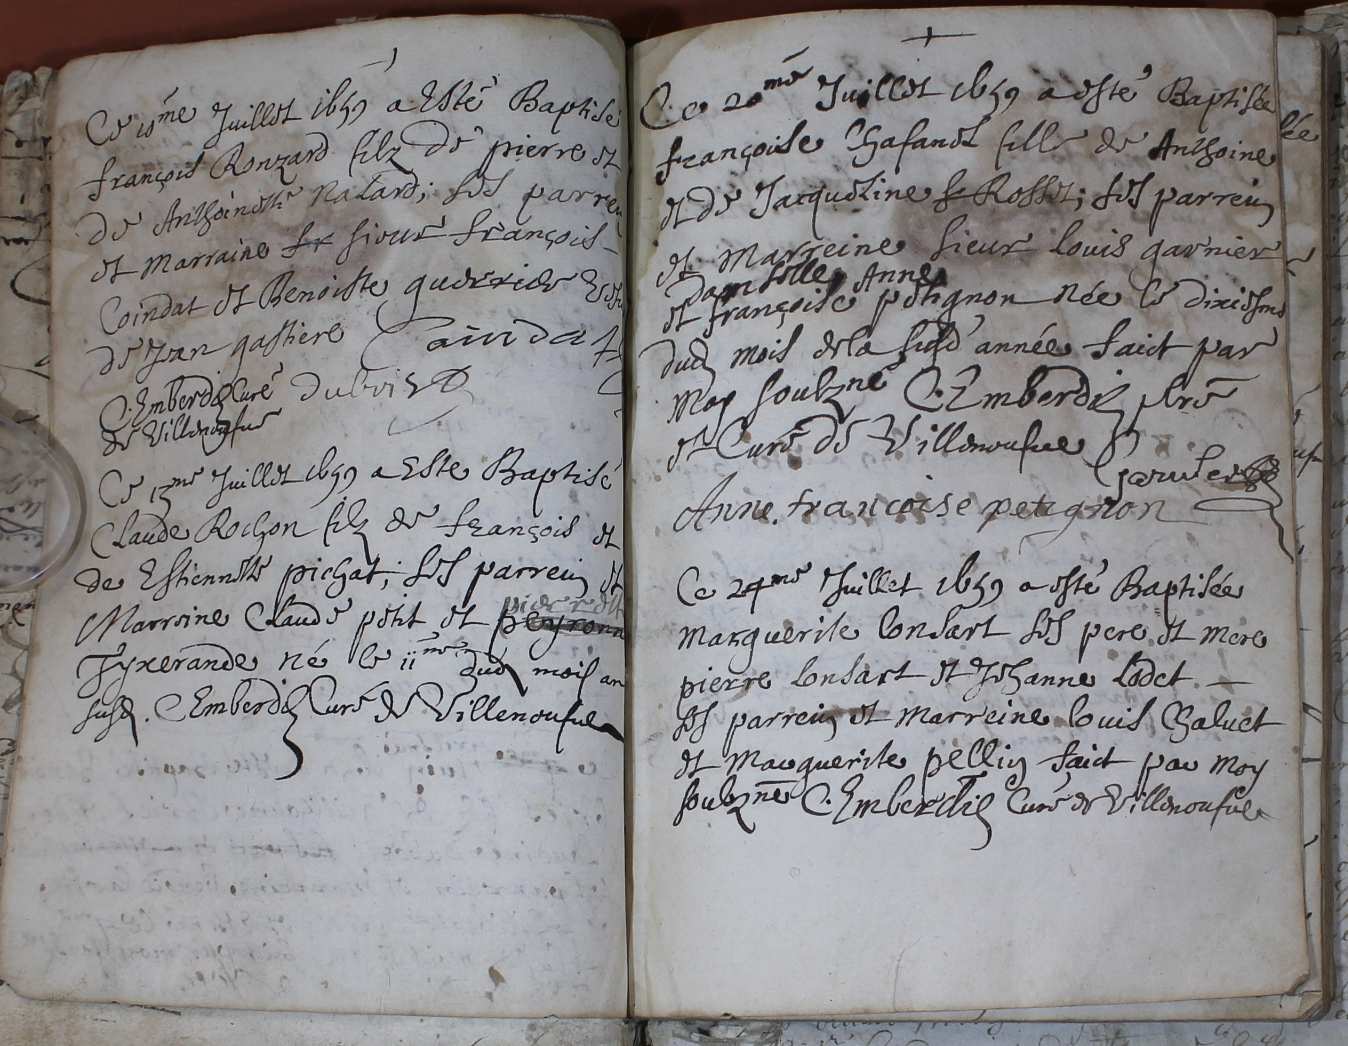 Ce 10me Juillet 1659 a Esté Baptisé
françois Ronzard filz de pierre et
de Anthoinette Natard; ses parrein
et marraine sieur françois
Coindat et Benoiste guerride
de Jean gastiere Coindat
C. Emberdis Curé dubois
de Villeneufue
Ce 13me Juillet 1659 a Este Baptisé
Claude Rochon filz de françois et
de Estiennette pichat; ses parrein et
Marreine Claude petit et pierrette
Tyxerande né le 11me dud mois an
susd. C. Emberdis Curé de Villeneufue
Ce 20me Juillet 1659 a esté Baptisée
françoise Chafanel fille de Anthoine
et de Jacqueline Rosset; ses parrein
et Marreine sieur louis garnier
et Damoiselle Anne
françoise petignon née le dixiesme
dud mois de la susd année faict par
Moy soubzné C. Emberdis pbre
et Curé de Villeneufue
Anne francoise petignon
Ce 24me Juillet 1659 a esté Baptisée
Marguerite lonsart ses pere et mere
pierre lonsart et Jehanne lodet
ses parrein et Marreine louis Chaluet
et Marguerite pellin faict par Moy
soubzné C. Emberdis Curé de Villeneufue